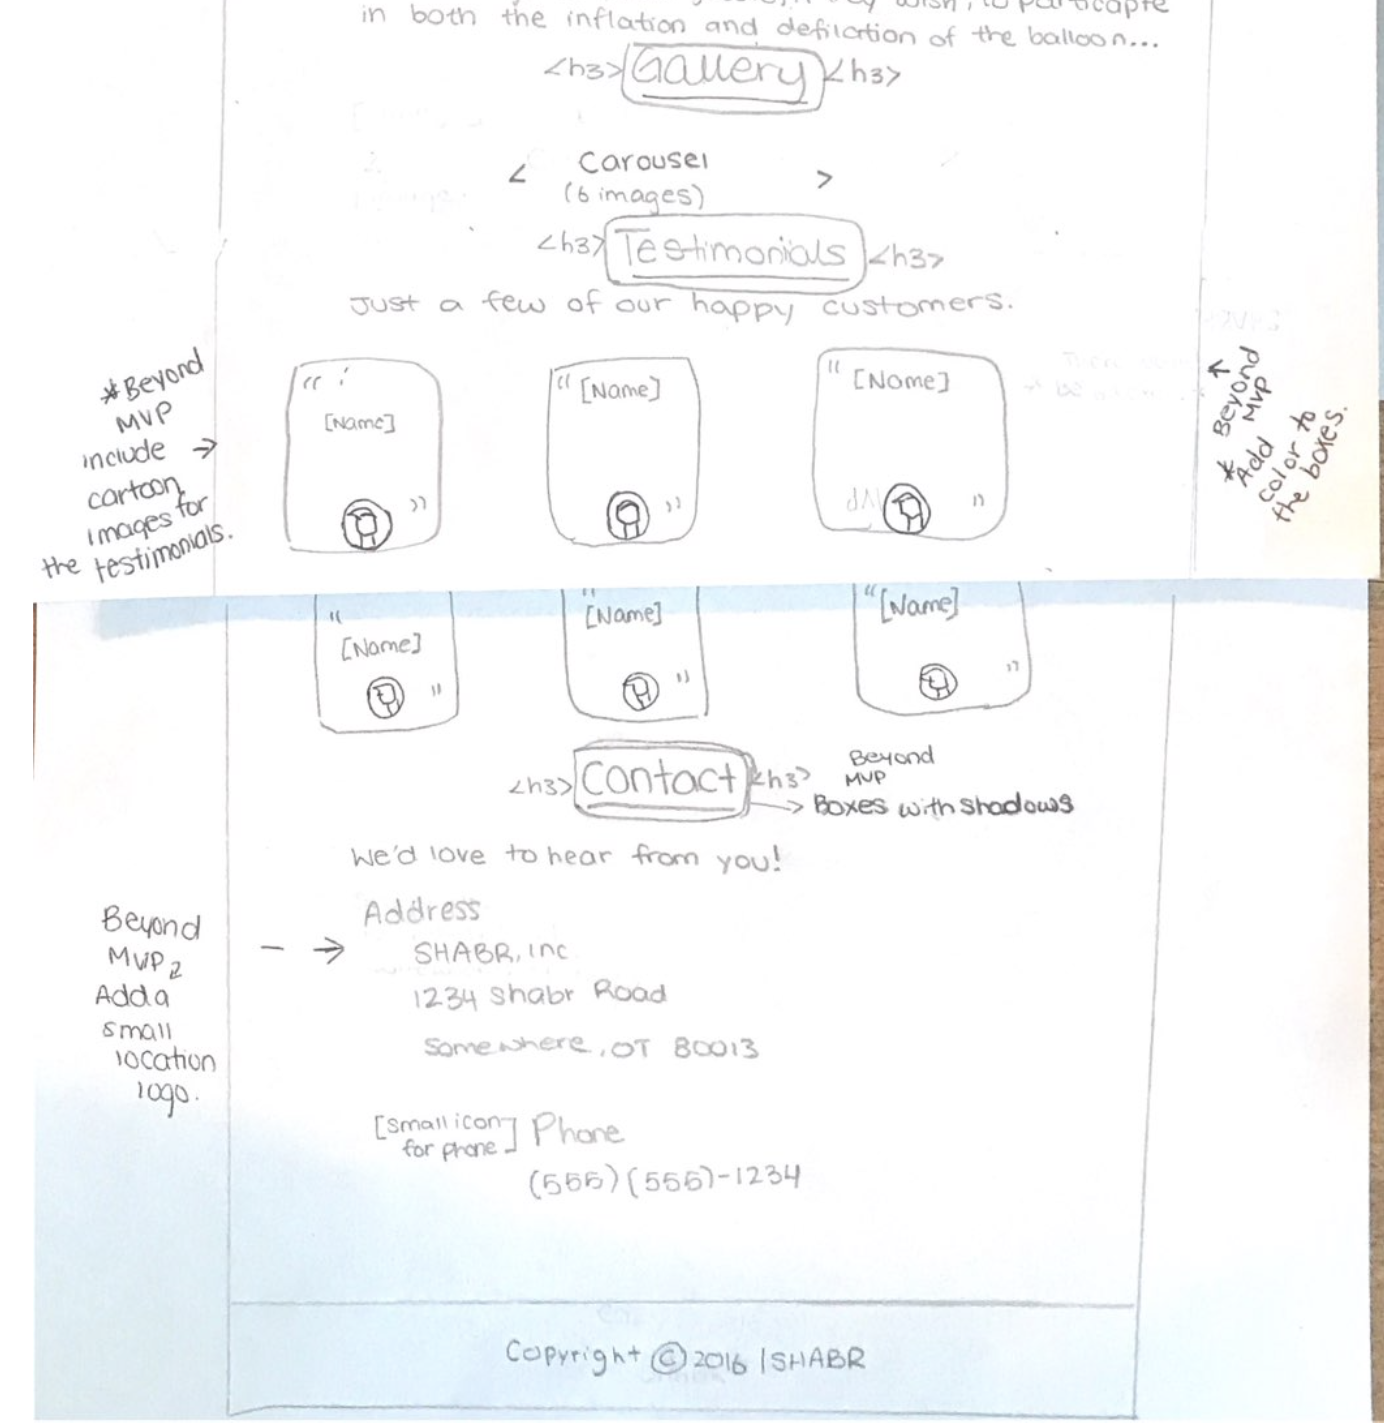 wish, to particapte
in both the inflation and defilation of the balloon...
<h3> Gallery <h3>
< Carousel >
(6 images)
<h3> Testimonials <h3>
Just a few of our happy customers.
*Beyond
MVP
include →
cartoon
images for
the testimonials.
“
[Name]
”
“ [Name]
”
“ [Name]
”
↑
* Beyond
MVP
Add
color to
the boxes.
“
[Name]
”
“
[Name]
”
“[Name]
”
<h3> Contact <h3>
Beyond
MVP
→ Boxes with shadows
We'd love to hear from you!
Beyond
MVP
Add a
small
location
logo.
- →
Address
SHABR, inc
1234 Shabr Road
Somewhere, OT 80013
[small icon
for phone] Phone
(555)(555)-1234
Copyright © 2016 | SHABR